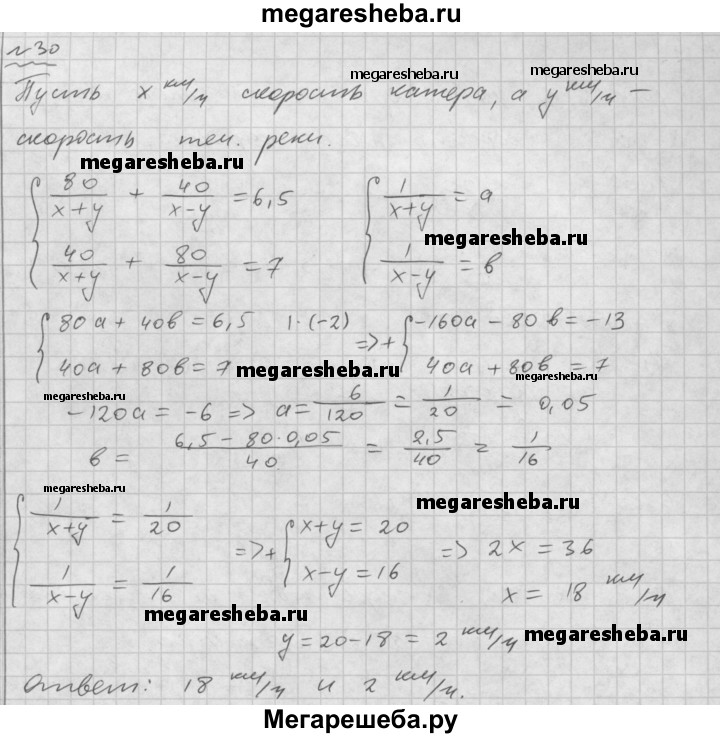 megaresheba.ru
№30
megaresheba.ru megaresheba.ru
Пусть x км/ч скорость катера, а y км/ч –
скорость теч. реки.
megaresheba.ru
{ 80/(x+y) + 40/(x-y) = 6,5 { 1/(x+y) = a
megaresheba.ru
40/(x+y) + 80/(x-y) = 7 1/(x-y) = в
{ 80a + 40в = 6,5 |·(-2) =>+ { -160a - 80в = -13
40a + 80в = 7 megaresheba.ru 40a + 80в = 7
megaresheba.ru
-120a = -6 => a = 6/120 = 1/20 = 0,05
в = (6,5 - 80·0,05)/40 = 2,5/40 = 1/16
megaresheba.ru megaresheba.ru
{ 1/(x+y) = 1/20 =>+ { x+y = 20 => 2x = 36
1/(x-y) = 1/16 x-y = 16 x = 18 км/ч
megaresheba.ru
y = 20-18 = 2 км/ч megaresheba.ru
Ответ: 18 км/ч и 2 км/ч.
Мегарешеба.ру